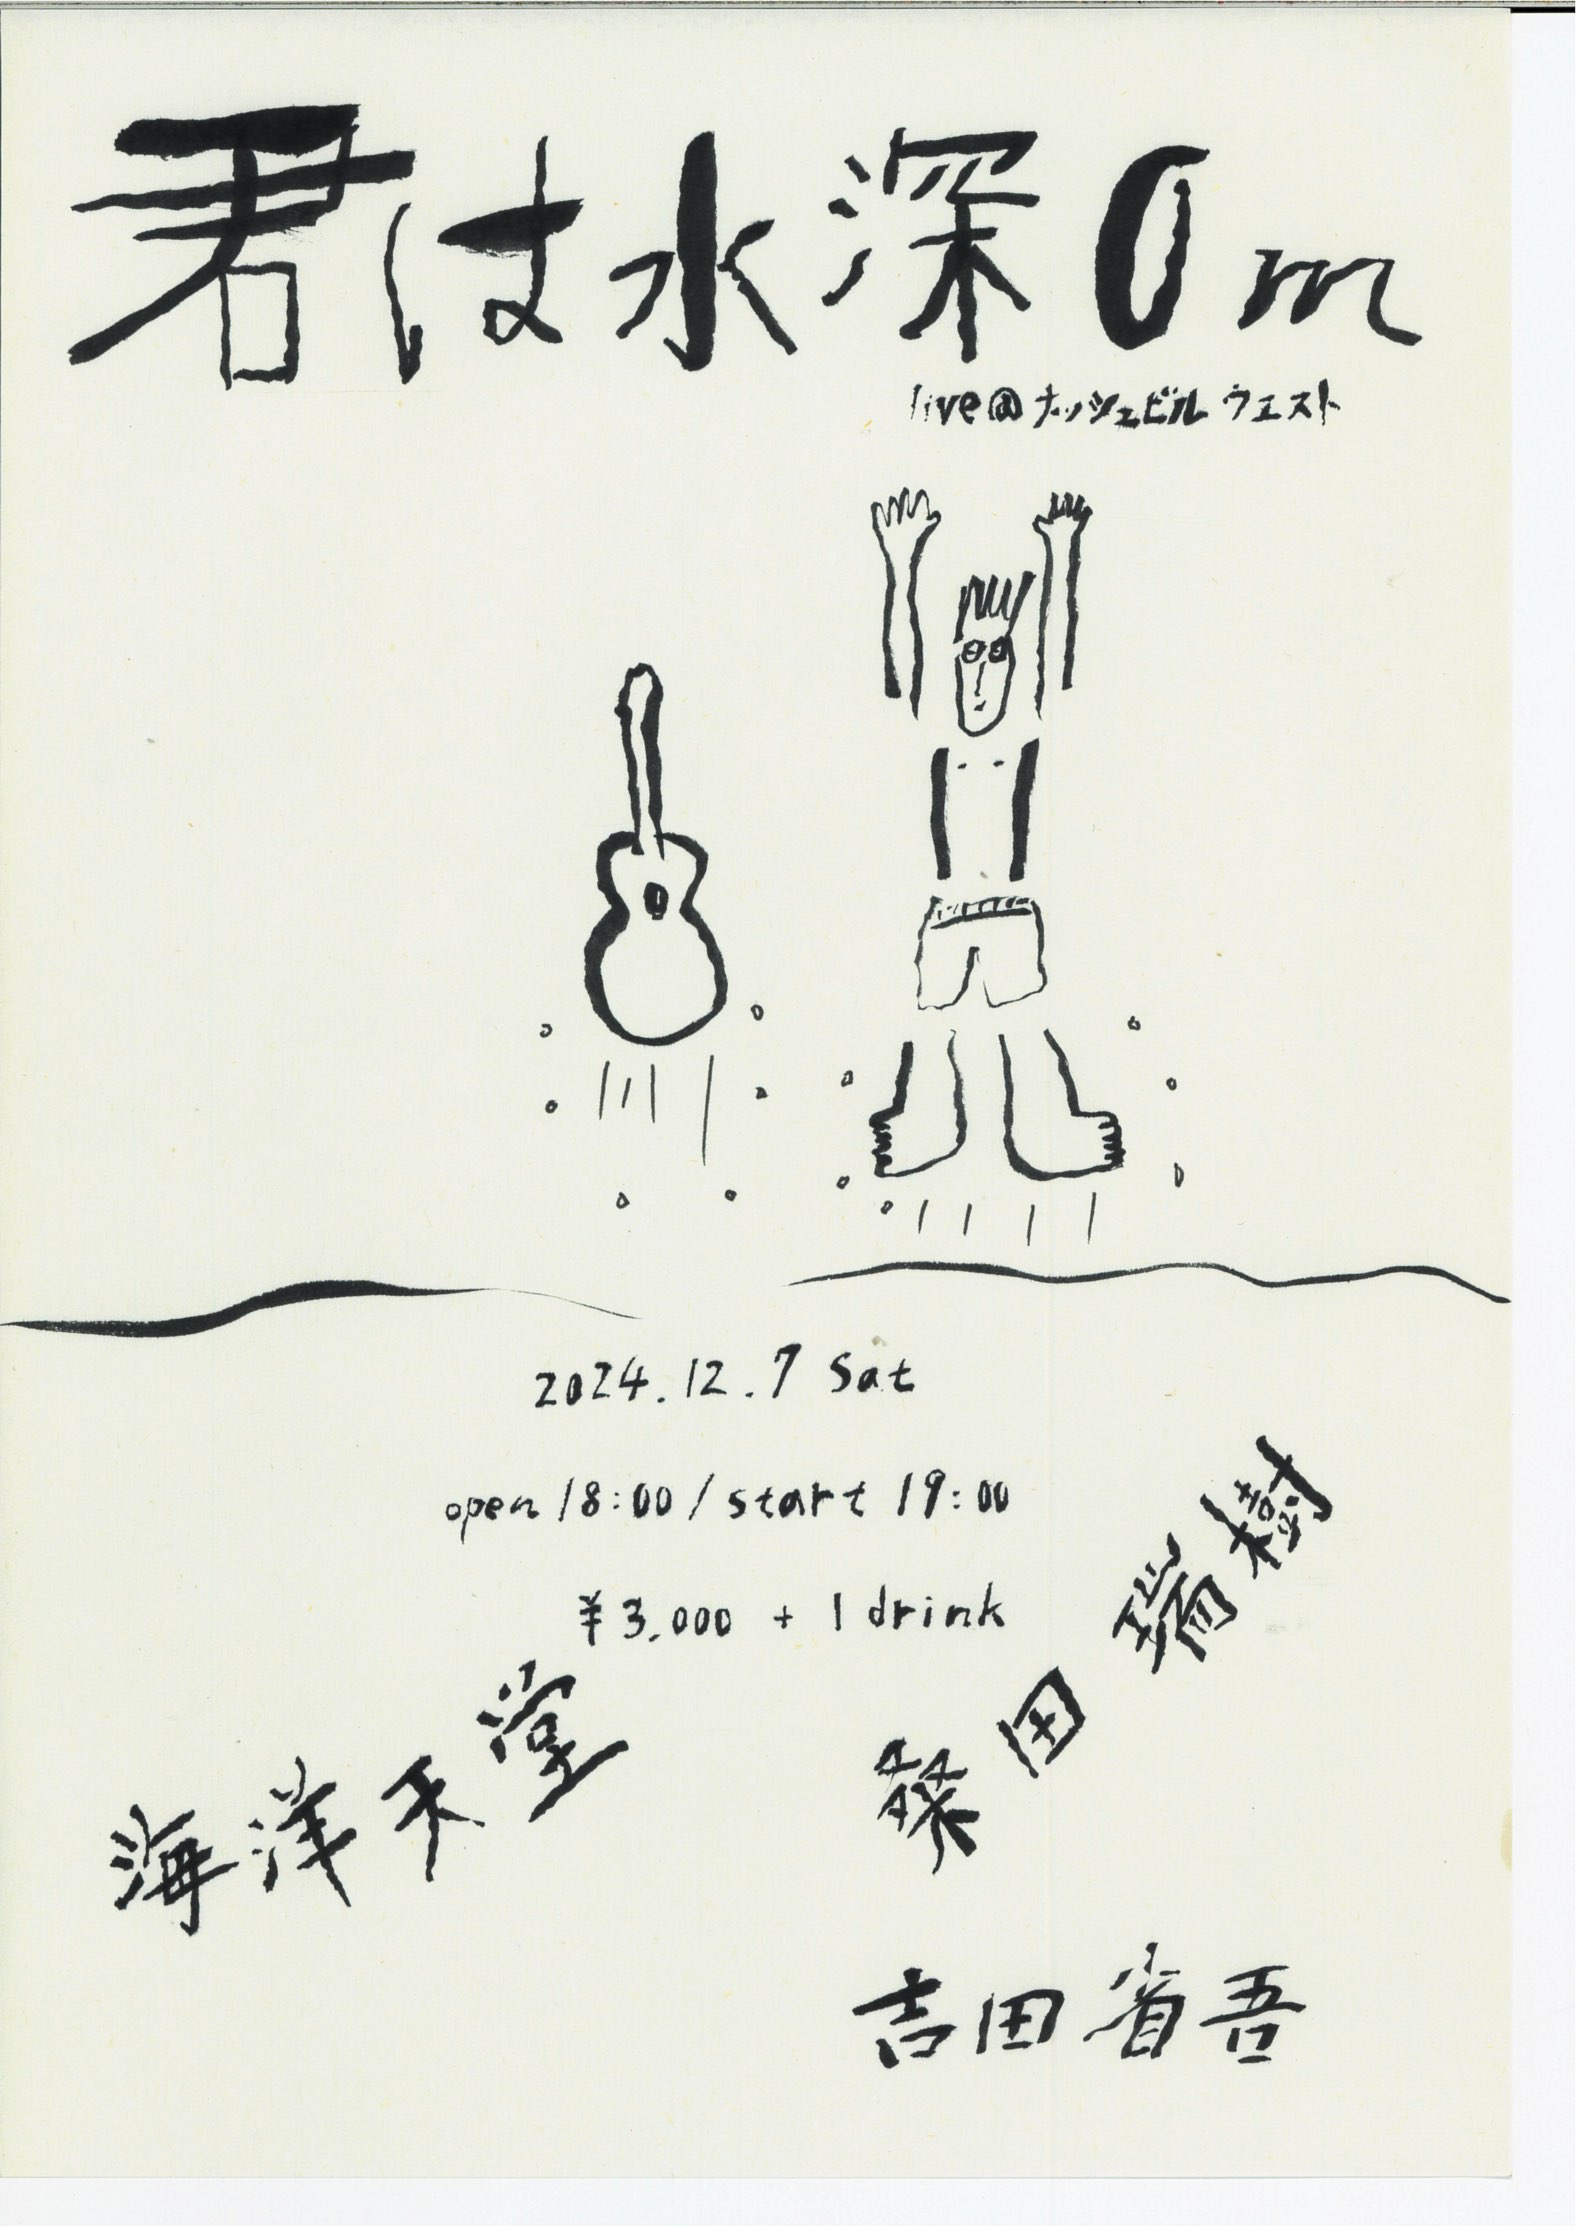 君は水深0m
live@ナッシュビルウエスト
2024.12.7 Sat
open 18:00 / start 19:00
¥3.000 + 1 drink
海洋天堂
桑田瑞樹
吉田省吾